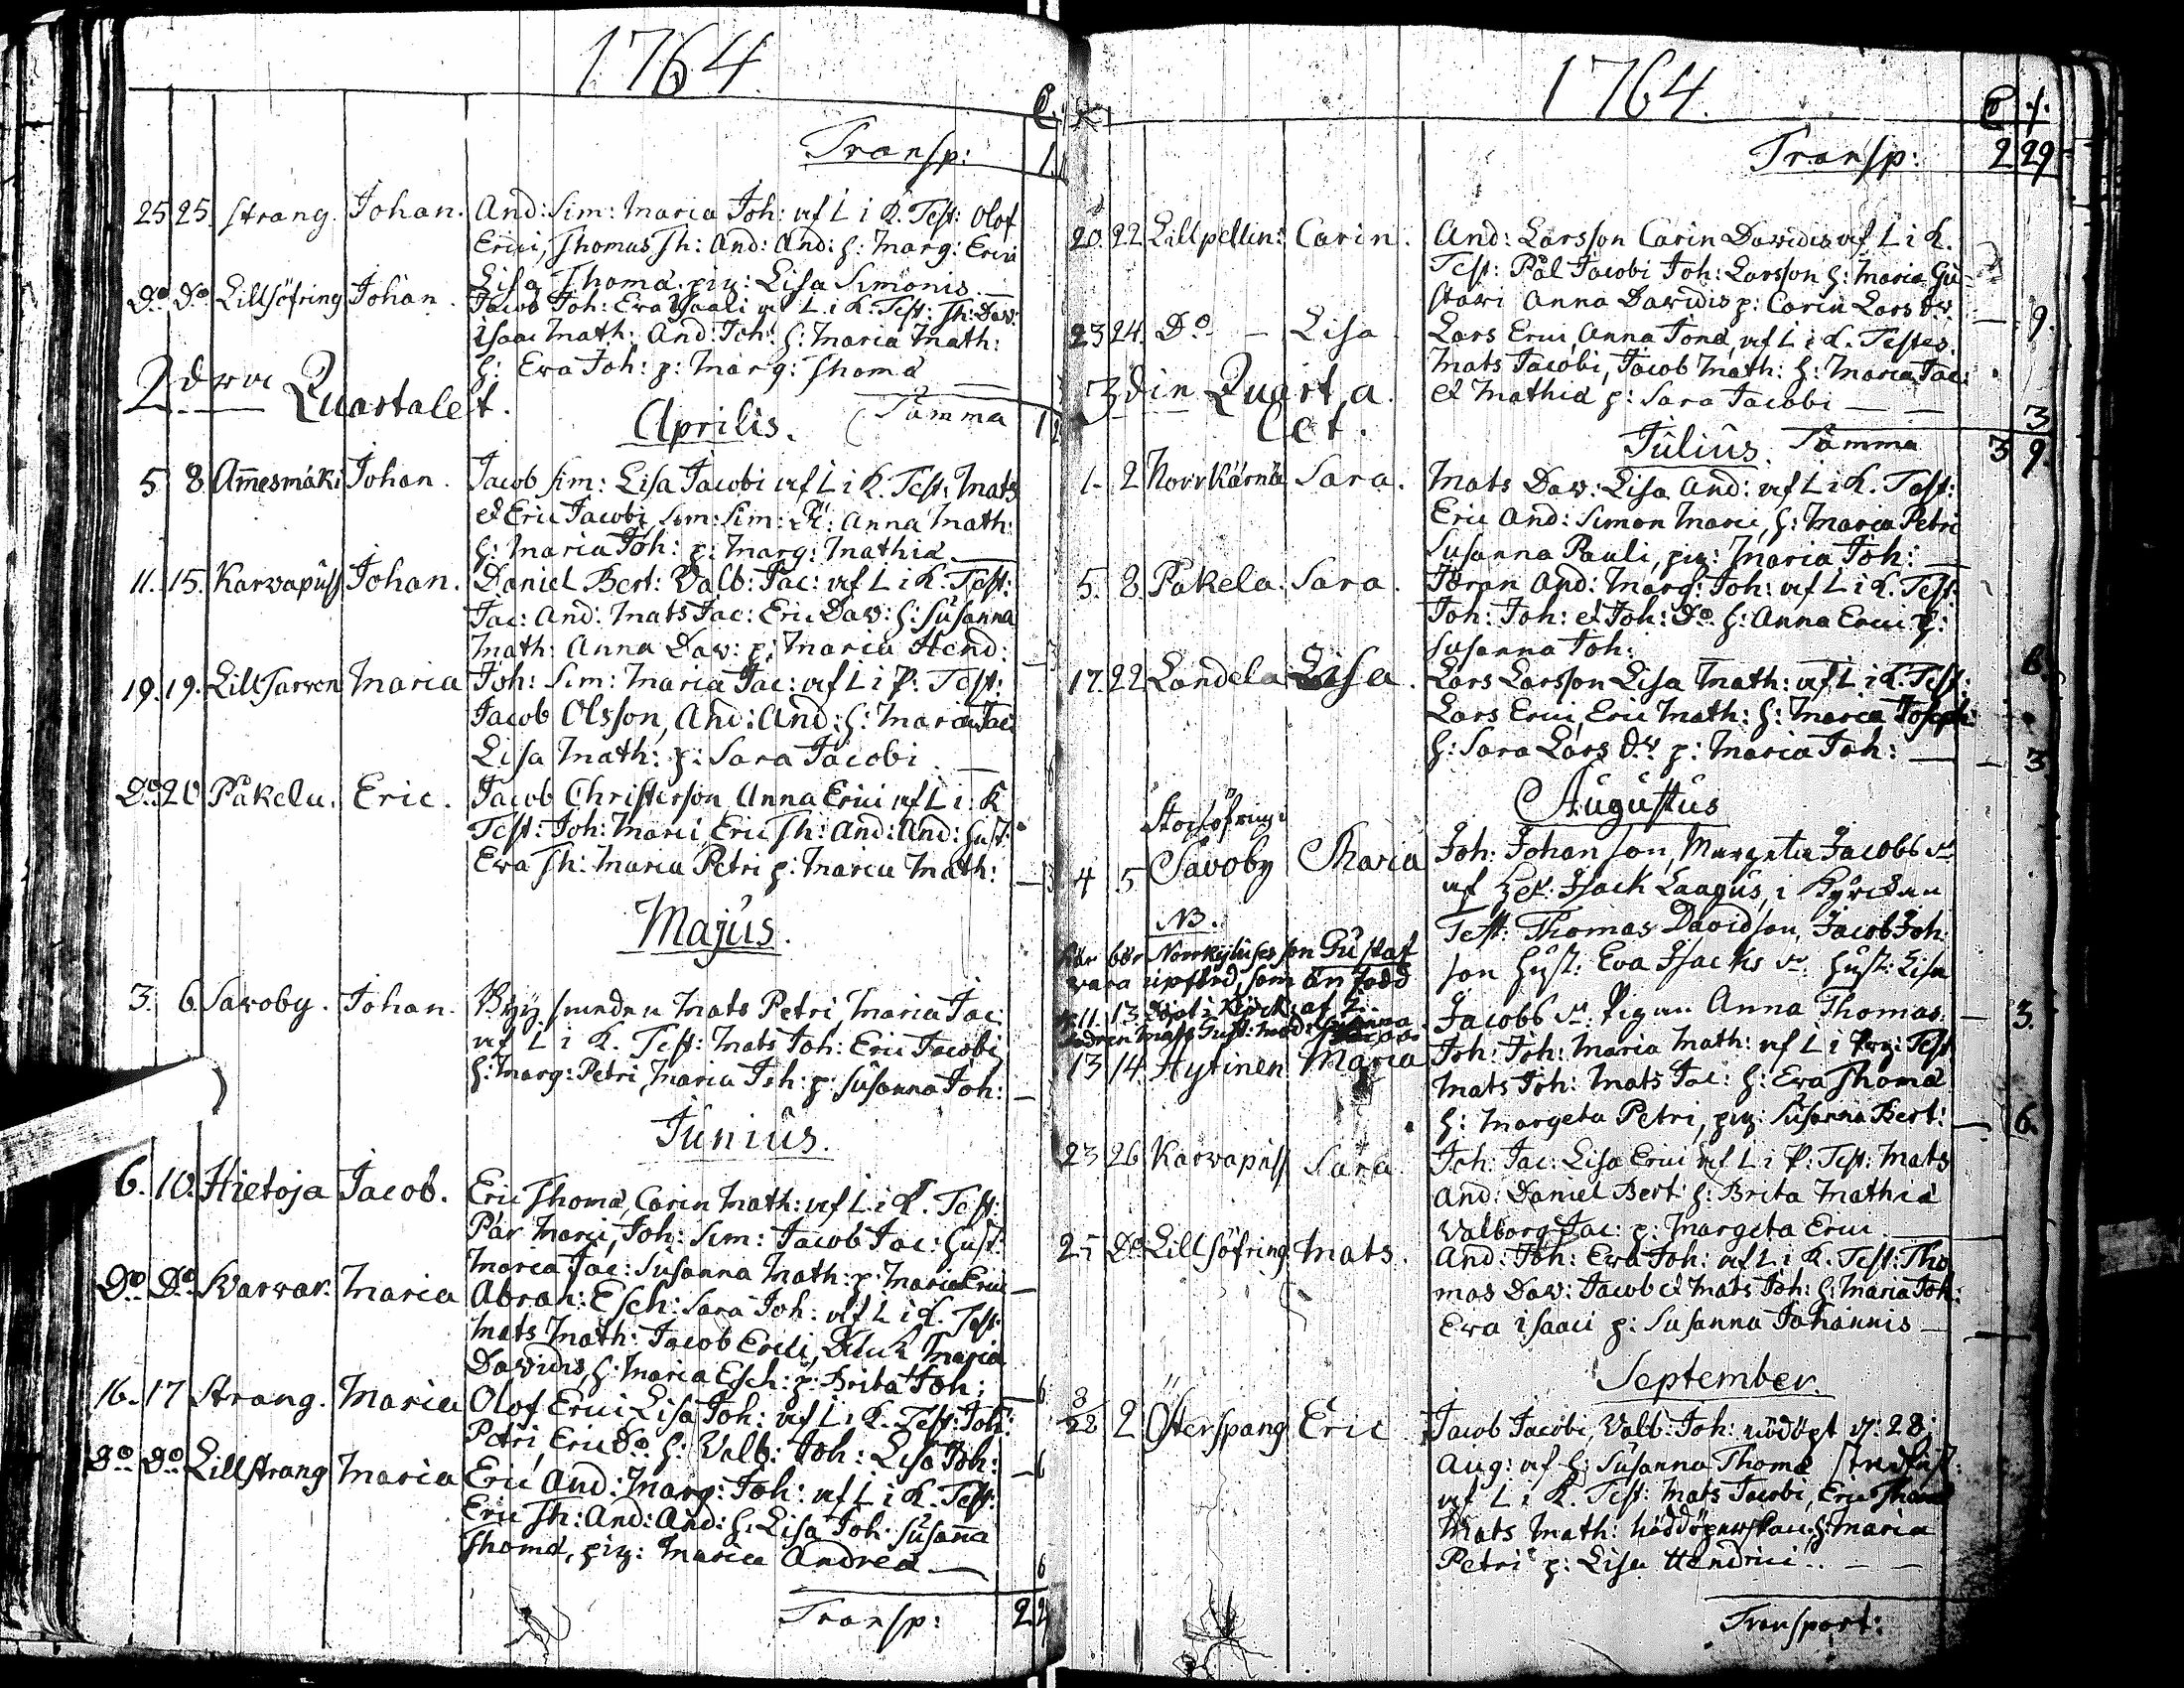 1764.
C.
Transp: 1
25 25. Strang. Johan. And: Sim: Maria Joh: af L i K. Test: Olof
Erici, Thomas Th: And: And: h: Marg: Erici
Lisa Thomæ. pig: Lisa Simonis. —
Do. Do. Lillsöfring Johan. Jacob Joh: Eva Isaaci af L i K. Test: Th: Dav:
Isaac Math: And: Joh: h: Maria Math:
h: Eva Joh: p: Marg: Thomæ —
2dra Quartalet. Summa
Aprilis.
5 8. Ammesmäki Johan. Jacob Sim: Lisa Jacobi af L i K. Test: Mats
et Eric Jacobi, Sim: Sim: h: Anna Math:
h: Maria Joh: p: Marg: Mathiæ —
11. 15. Karvapuss Johan. Daniel Bert: Valb: Jac: af L i K. Test:
Jac: And: Mats Jac: Eric Dav: h: Susanna
Math: Anna Dav: p: Maria Hend:
19. 19. Lill Sarven Maria Joh: Sim: Maria Jac: af L i P: Test:
Jacob Olsson, And: And: h: Maria Jac:
Lisa Math: p: Sara Jacobi. —
Do. 20 Påkela. Eric. Jacob Christerson Anna Erici af L i K
Test: Joh: Marci, Eric Th: And: And: hust:
Eva Th: Maria Petri p: Maria Math: —
Majus.
3. 6. Savoby. Johan. Mats Petri, Maria Jac:
af L i K. Test: Mats Joh: Eric Jacobi,
h: Marg: Petri, Maria Joh: p: Susanna Joh: —
Junius.
6. 10. Hietoja Jacob. Eric Thomæ, Carin Math: af L i K. Test:
Pär Marci, Joh: Sim: Jacob Jac: hust:
Maria Jac: Susanna Math: p: Maria Erici —
Do. Do. Kvarvar. Maria Abrah: Esch: Sara Joh: af L i K. Test:
Mats Math: Jacob Erici, Maria
Davidis, h: Maria Esch: p: Brita Joh: — 6
16. 17 Strang. Maria Olof Erici Lisa Joh: af L i K. Test: Joh:
Petri, Eric Do. h: Valb: Joh: Lisa Joh: — 6
Do. Do. Lillstrang Maria Eric And: Marg: Joh: af L i K. Test:
Eric Th: And: And: h: Lisa Joh: Susanna
Thomæ, pig: Maria Andreæ — 6
Transp: 2
1764.
Transp: 2 29
20. 22 Lillpellin: Carin. And: Larsson Carin Davidis af L i K.
Test: Pål Jacobi Joh: Larsson h: Maria Gu-
stavi Anna Davidis p: Carin Lars dr — 9.
23 24. Do — Lisa. Lars Erici, Anna Jonæ, af L i K. Testes.
Mats Jacobi, Jacob Math: h: Maria Jac:
et Mathiæ p: Sara Jacobi — — 3
3din Quart. a.
let. Summa 3 9.
Julius.
1. 2 Norrkärnä Sara. Mats Dav: Lisa And: af L i K. Test:
Eric And: Simon Marci, h: Maria Petri
Susanna Pauli, pig: Maria Joh: —
5. 8. Påkela. Sara. Jöran And: Marg: Joh: af L i K. Test:
Joh: Joh: et Joh: Do. h: Anna Erici p:
Susanna Joh: 6.
17. 22 Landela Lisa. Lars Larsson Lisa Math: af L i K. Test:
Lars Erici, Eric Math: h: Maria Joseph:
h: Sara Lars dr p: Maria Joh: — 3
Augustus
Storsöfring:
4 5 Savoby Maria Joh: Johanson, Margeta Jacobs dr
af Isack Laagus, i Kyrckan
Test: Thomas Davidson, Jacob Joh:
son hust: Eva Isacks dr. hust: Lisa
Jacobs dr. Pigan Anna Thomas: — 3.
NB.
Här bör Norrkylises son Gustaf
vara upförd, som än född
11. 13 Döpt i Kyrck: af L.
Mats Gust: Mod: Susanna
13 14. Hytinen Maria Joh: Joh: Maria Math: af L i Prg: Test
Mats Joh: Mats Jac: h: Eva Thomæ
h: Margeta Petri, pig: Susanna Bert: — 6.
23 26 Karvapuss Sara. Joh: Jac: Lisa Erici af L i P: Test: Mats
And: Daniel Bert: h: Brita Mathiæ
Valborg Jac: p: Margeta Erici —
25 Do. Lillsöfring Mats. And: Joh: Eva Joh: af L i K. Test: Tho
mas Dav: Jacob et Mats Joh: h: Maria Joh:
Eva Isaaci p: Susanna Johannis —
September.
8/28 2 Österspang Eric Jacob Jacobi, Valb: Joh: nödöpt d: 28
Aug: af h: Susanna Thomæ
af L i K. Test: Mats Jacobi, Eric Thomæ
Mats Math: nöddöperskan h: Maria
Petri p: Lisa Hendrici. — —
Transport: